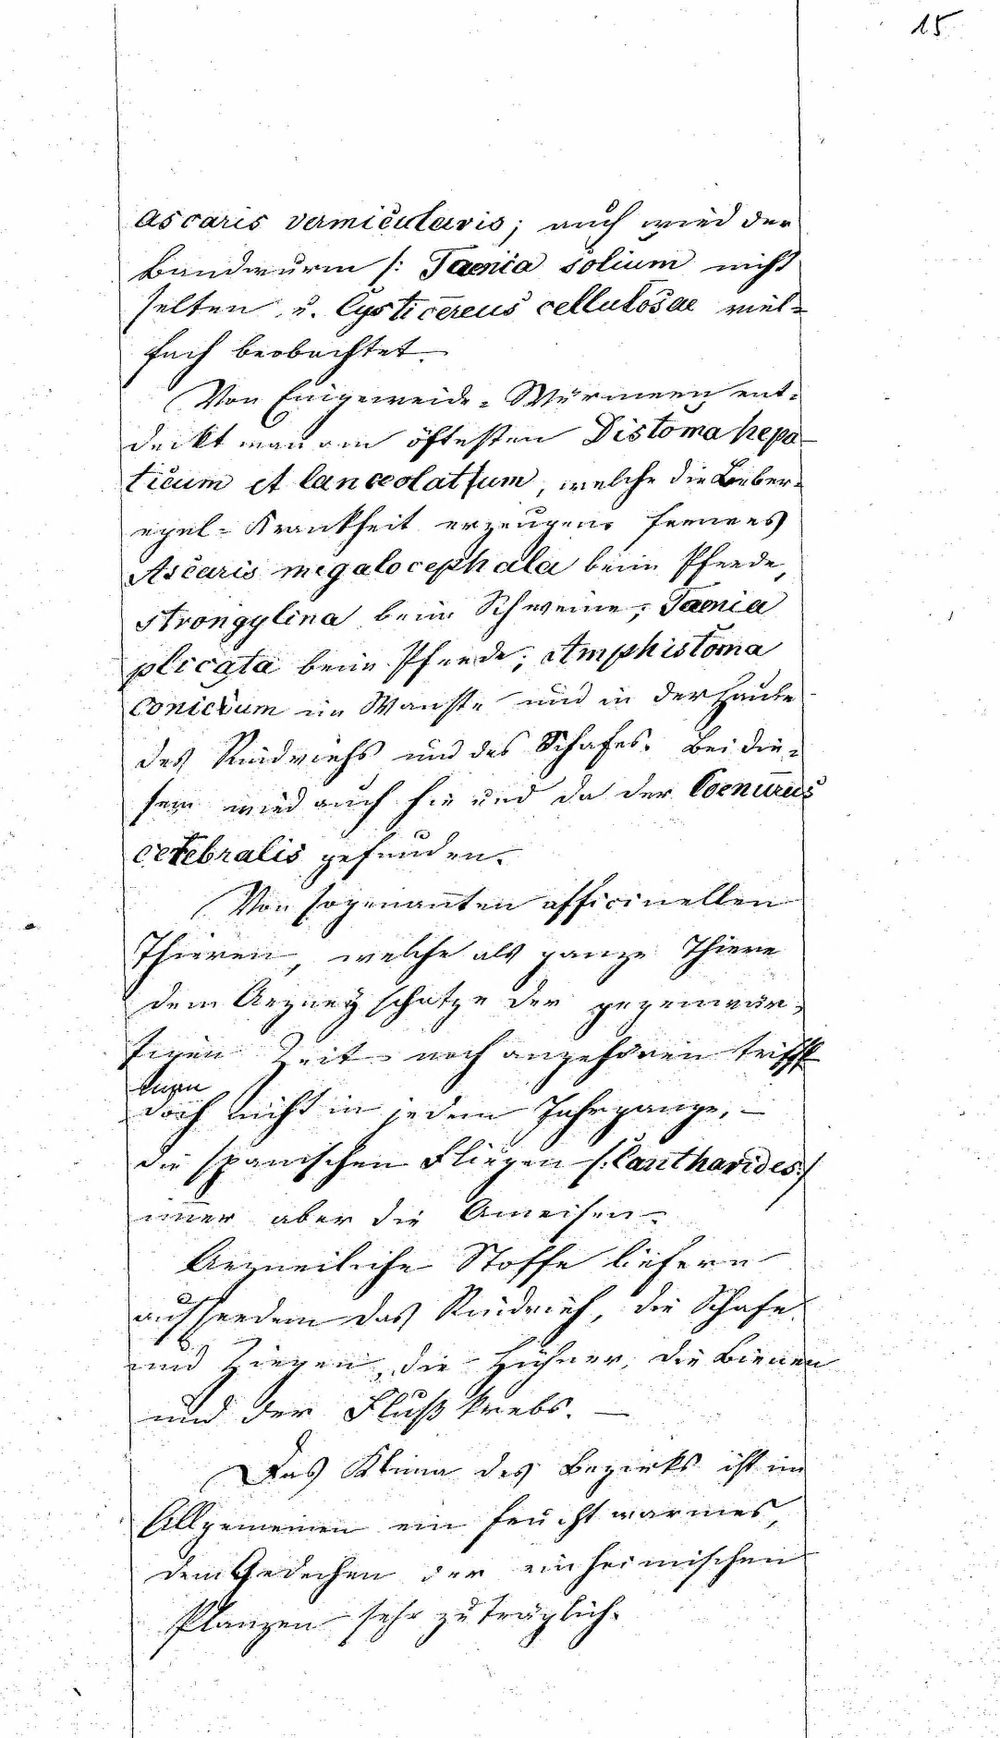 15
Ascaris vermicularis; auch wird der
Bandwurm /: Taenia solium nicht
selten u. Cysticereus cellulosae viel-
fach beobachtet.
Von Eingeweide-Würmern ent-
deckt man am öftesten Distoma hepa-
ticum et lanceolattum, welche die Leber-
egel-Krankheit erzeugen, ferners
Ascaris megalocephala beim Pferde,
strongylina beim Schweine, Taenia
plicata beim Pferde; Amphistoma
conicum im Wanste und in der Haube
des Rindviehs und des Schafes. Bei die-
sem wird auch hie und da der Coenurus
cerebralis gefunden.
Von sogenannten officinellen
Thieren, welche als ganze Thiere
dem Arzneyschatze der gegenwär-
tigen Zeit noch angehören trifft
doch nicht in jedem Jahrgange, –
die spanischen Fliegen /: Cantharides:/
im̄er aber die Ameisen.
Arzneiliche Stoffe liefern
ausserdem das Rindvieh, die Schafe
und Ziegen, die Hühner, die Bienen
und der Flußkrebs. –
Das Klima des Bezirks ist im
Allgemeinen ein feucht warmes,
dem Gedeihen der einheimischen
Planzen sehr zuträglich.